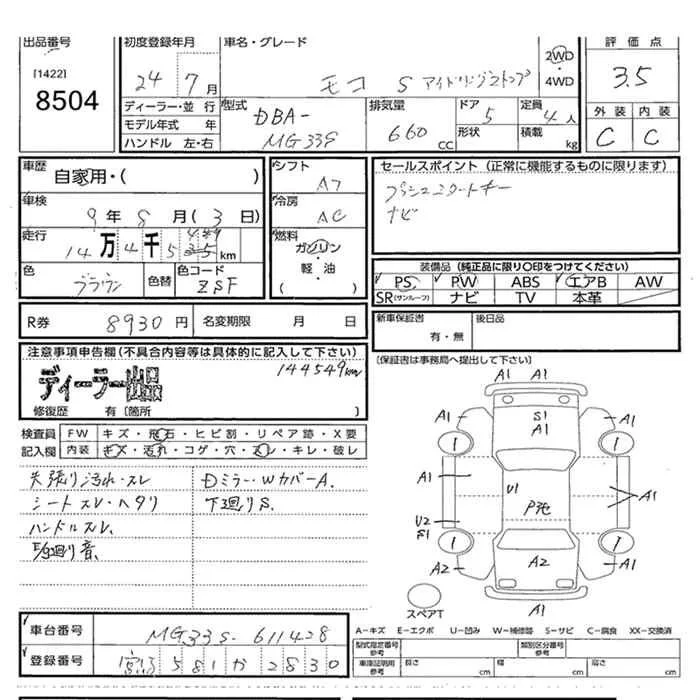 出品番号
[1422]
8504
初度登録年月
24 7 月
車名・グレード
モコ S アイドリングストップ
2WD
・
4WD
評価点
3.5
外装 内装
C C
ディーラー・並行
モデル年式 年
ハンドル 左・右
型式
DBA-
MG33S
排気量
660 CC
ドア 5
形状
定員 4 人
積載 kg
車歴
自家用・( )
車検
9 年 8 月 ( 3 日)
走行
14 万 4 千 5 49 km
色
ブラウン
色替
色コード
ZSF
シフト
AT
冷房
AC
燃料
ガソリン
・
軽・油
( )
セールスポイント (正常に機能するものに限ります)
プッシュスタートキー
ナビ
装備品 (純正品に限り○印をつけてください)
PS PW ABS エアB AW
SR(サンルーフ) ナビ TV 本革
R券
8930 円
名変期限 月 日
新車保証書
有・無
後日品
(保証書は事務局へ提出して下さい)
注意事項申告欄(不具合内容等は具体的に記入して下さい)
144549km
ディーラー出品
修復歴 有(箇所 )
検査員
記入欄
FW キズ・飛石・ヒビ割・リペア跡・X要
内装 キズ・汚れ・コゲ・穴・スレ・キレ・破レ
天張り汚れ・スレ
Dミラー・WカバーA.
シートスレ・ヘタリ
下廻りS.
ハンドルスレ.
A1 A1
A1 S1 A1
A1
A1 U1 A1
U2
S1
A2 A2 A1
A1
スペアT
車台番号
MG33S-611428
登録番号
581 か 2830
A-キズ E-エクボ U-凹み W-補修跡 S-サビ C-腐食 XX-交換済
型式指定番号
参考
類別区分番号
参考
車庫証明用
参考
長さ cm 幅 cm 高さ cm